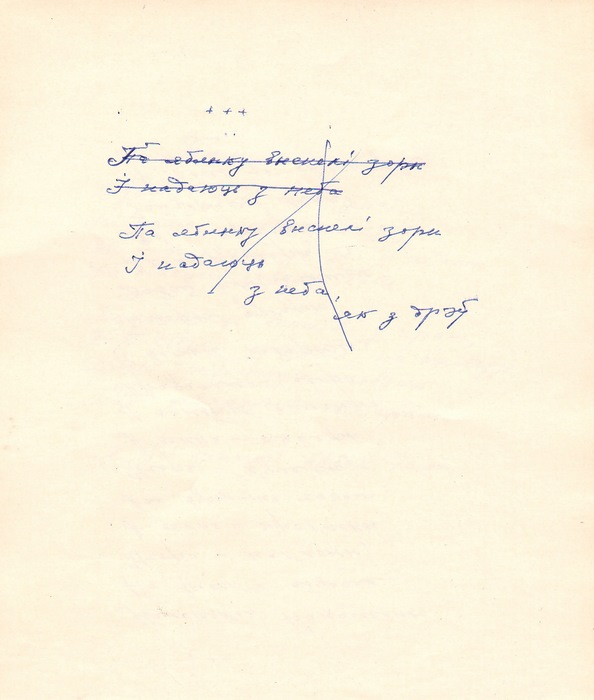 + + +
Па яблыку выспелі зоры
І падаюць з неба
Па яблыку выспелі зоры
І падаюць
з неба,
як з дрэў